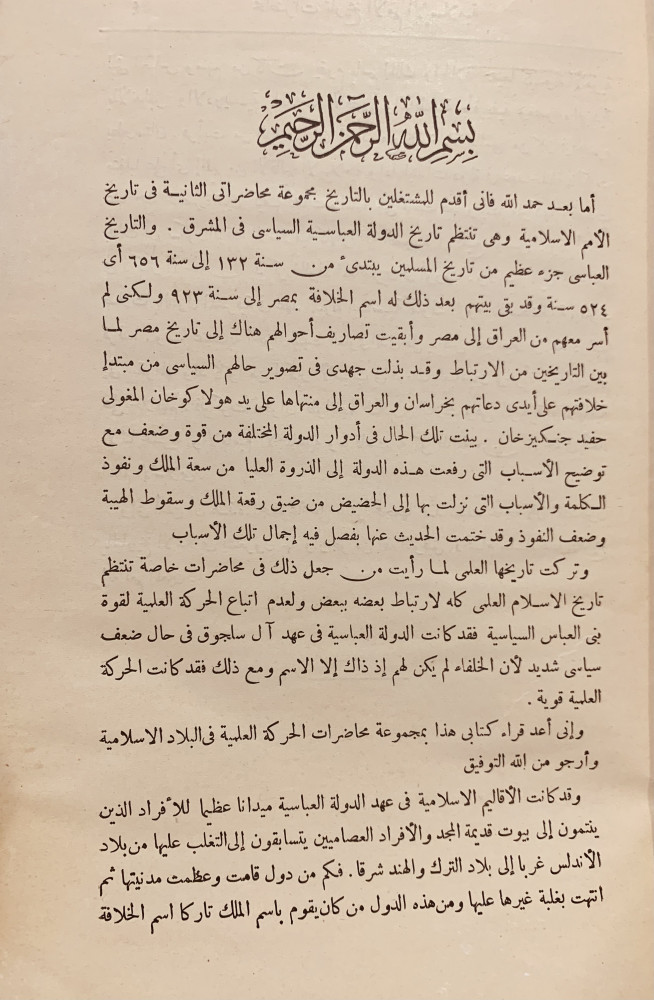 بسم الله الرحمن الرحيم
أما بعد حمد الله فانى أقدم للمشتغلين بالتاريخ مجموعة محاضراتى الثانية فى تاريخ
الأمم الاسلامية وهى تنتظم تاريخ الدولة العباسية السياسى فى المشرق . والتاريخ
العباسى جزء عظيم من تاريخ المسلمين يبتدىء من سنة ١٣٢ إلى سنة ٦٥٦ أى
٥٢٤ سنة وقد بقى بيتهم بعد ذلك له اسم الخلافة بمصر إلى سنة ٩٢٣ ولكنى لم
أسر معهم من العراق إلى مصر وأبقيت تصاريف أحوالهم هناك إلى تاريخ مصر لما
بين التاريخين من الارتباط وقد بذلت جهدى فى تصوير حالهم السياسى من مبتدإ
خلافتهم على أيدى دعاتهم بخراسان والعراق إلى منتهاها على يد هولاكوخان المغولى
حفيد جنكيزخان . بينت تلك الحال فى أدوار الدولة المختلفة من قوة وضعف مع
توضيح الأسباب التى رفعت هذه الدولة إلى الذروة العليا من سعة الملك ونفوذ
الكلمة والأسباب التى نزلت بها إلى الحضيض من ضيق رقعة الملك وسقوط الهيبة
وضعف النفوذ وقد ختمت الحديث عنها بفصل فيه إجمال تلك الأسباب
وتركت تاريخها العلمى لما رأيت من جعل ذلك فى محاضرات خاصة تنتظم
تاريخ الاسلام العلمى كله لارتباط بعضه ببعض ولعدم اتباع الحركة العلمية لقوة
بنى العباس السياسية فقد كانت الدولة العباسية فى عهد آل سلجوق فى حال ضعف
سياسى شديد لأن الخلفاء لم يكن لهم إذ ذاك إلا الاسم ومع ذلك فقد كانت الحركة
العلمية قوية .
وإنى أعد قراء كتابى هذا بمجموعة محاضرات الحركة العلمية فى البلاد الاسلامية
وأرجو من الله التوفيق
وقد كانت الأقاليم الاسلامية فى عهد الدولة العباسية ميدانا عظيما للأفراد الذين
ينتمون إلى بيوت قديمة المجد والأفراد العصاميين يتسابقون إلى التغلب عليها من بلاد
الأندلس غربا إلى بلاد الترك والهند شرقا . فكم من دول قامت وعظمت مدنيتها ثم
انتهت بغلبة غيرها عليها ومن هذه الدول من كان يقوم باسم الملك تاركا اسم الخلافة